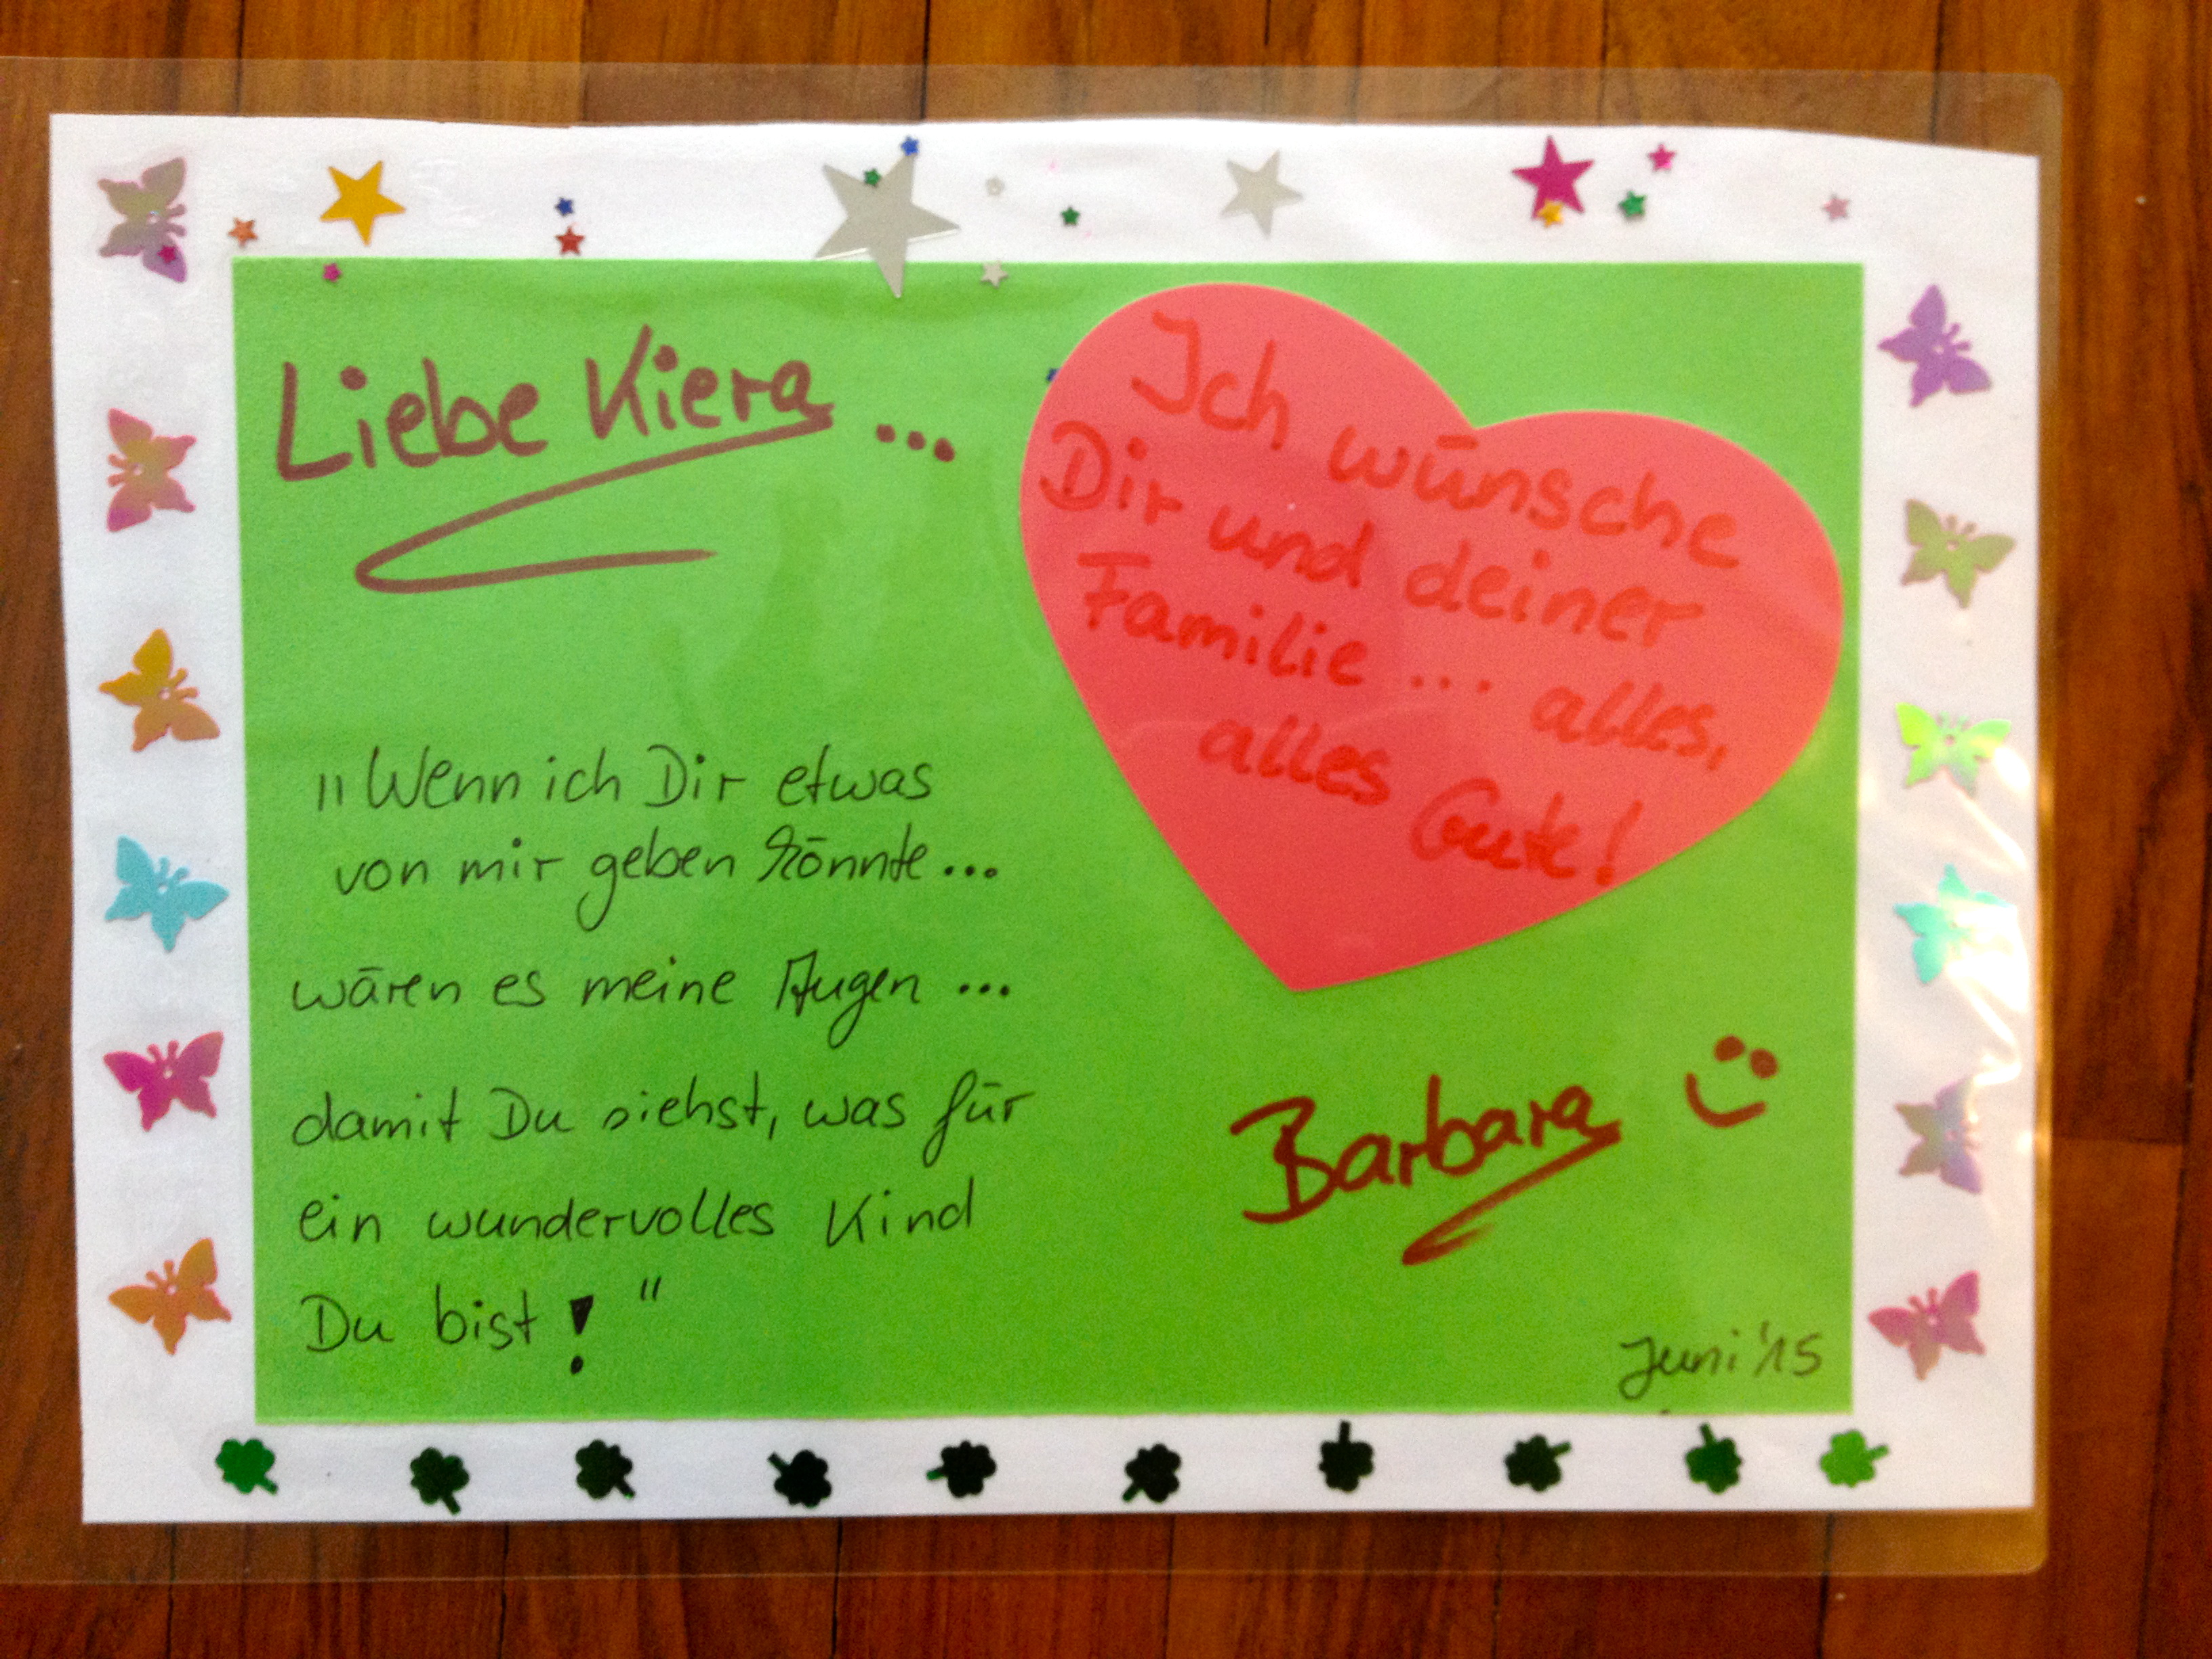 Liebe Kiera ...
"Wenn ich Dir etwas
von mir geben könnte ...
wären es meine Augen ...
damit Du siehst, was für
ein wundervolles Kind
Du bist! "
Ich wünsche
Dir und deiner
Familie ... alles,
alles Gute!
Barbara
Juni '15